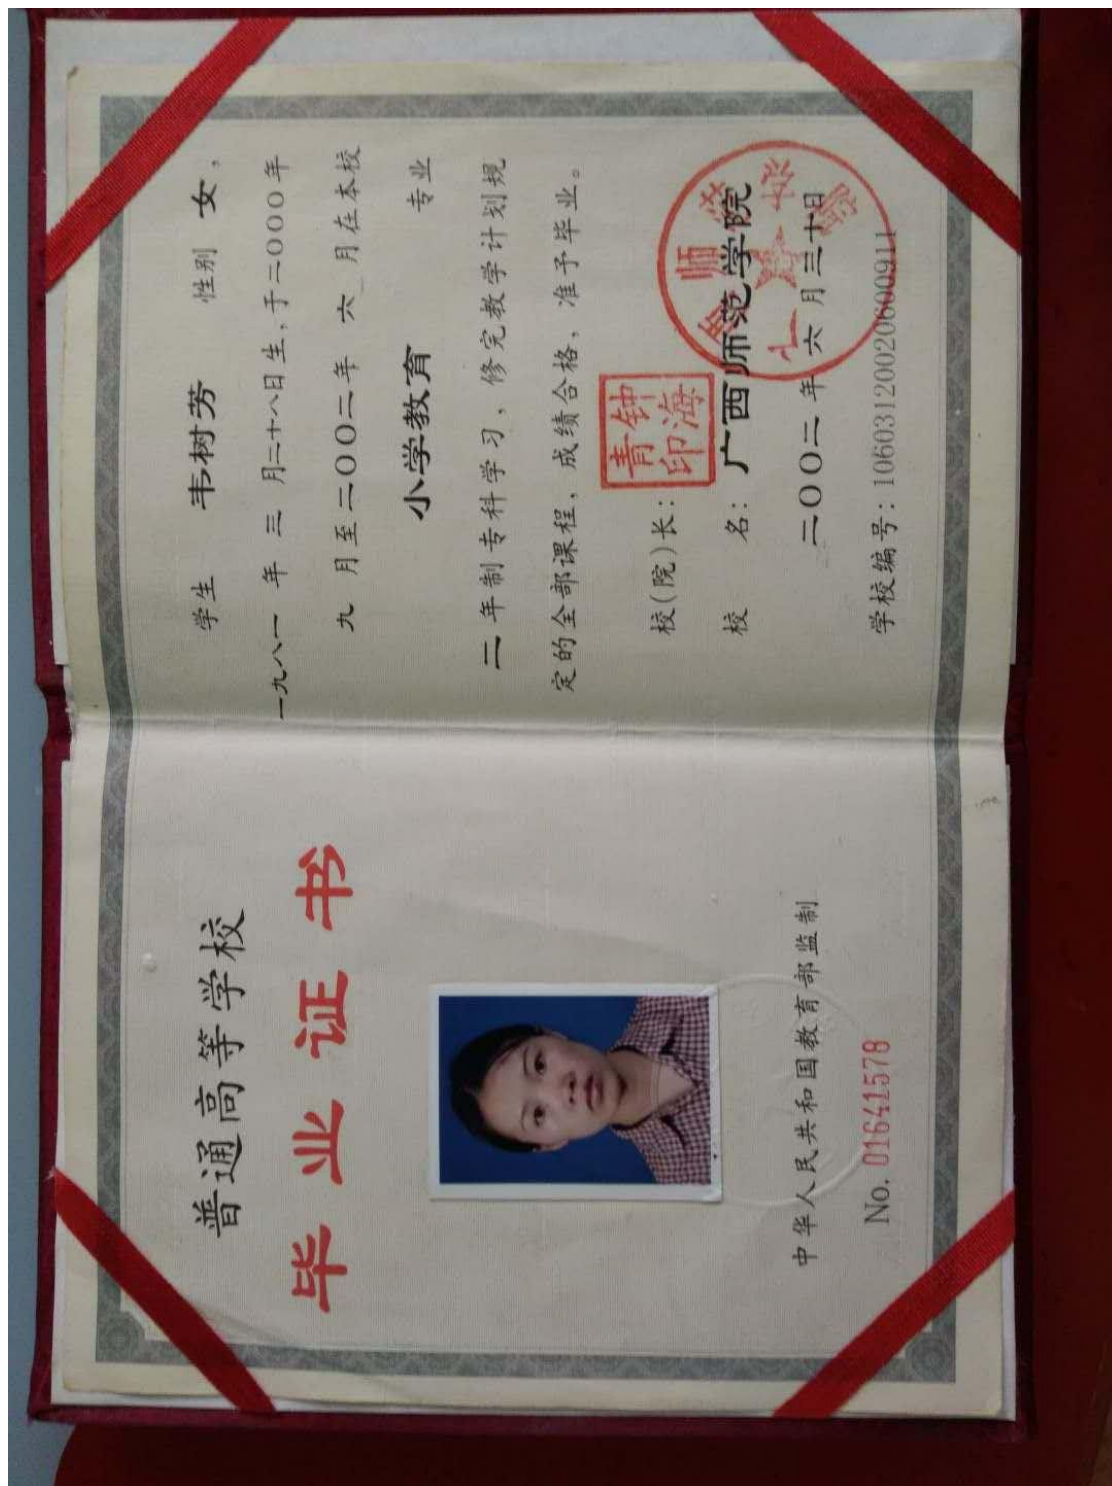 普通高等学校
毕业证书
中华人民共和国教育部监制
No. 01641578
学生 韦树芳 性别 女，
一九八一 年 三 月二十八日生，于二〇〇〇年
九 月至二〇〇二年 六 月在本校
小学教育 专业
二 年制专科学习，修完教学计划规
定的全部课程，成绩合格，准予毕业。
校(院)长：
钟海
青印
校 名：广西师范学院
二〇〇二 年 六 月三十日
学校编号：106031200206000911